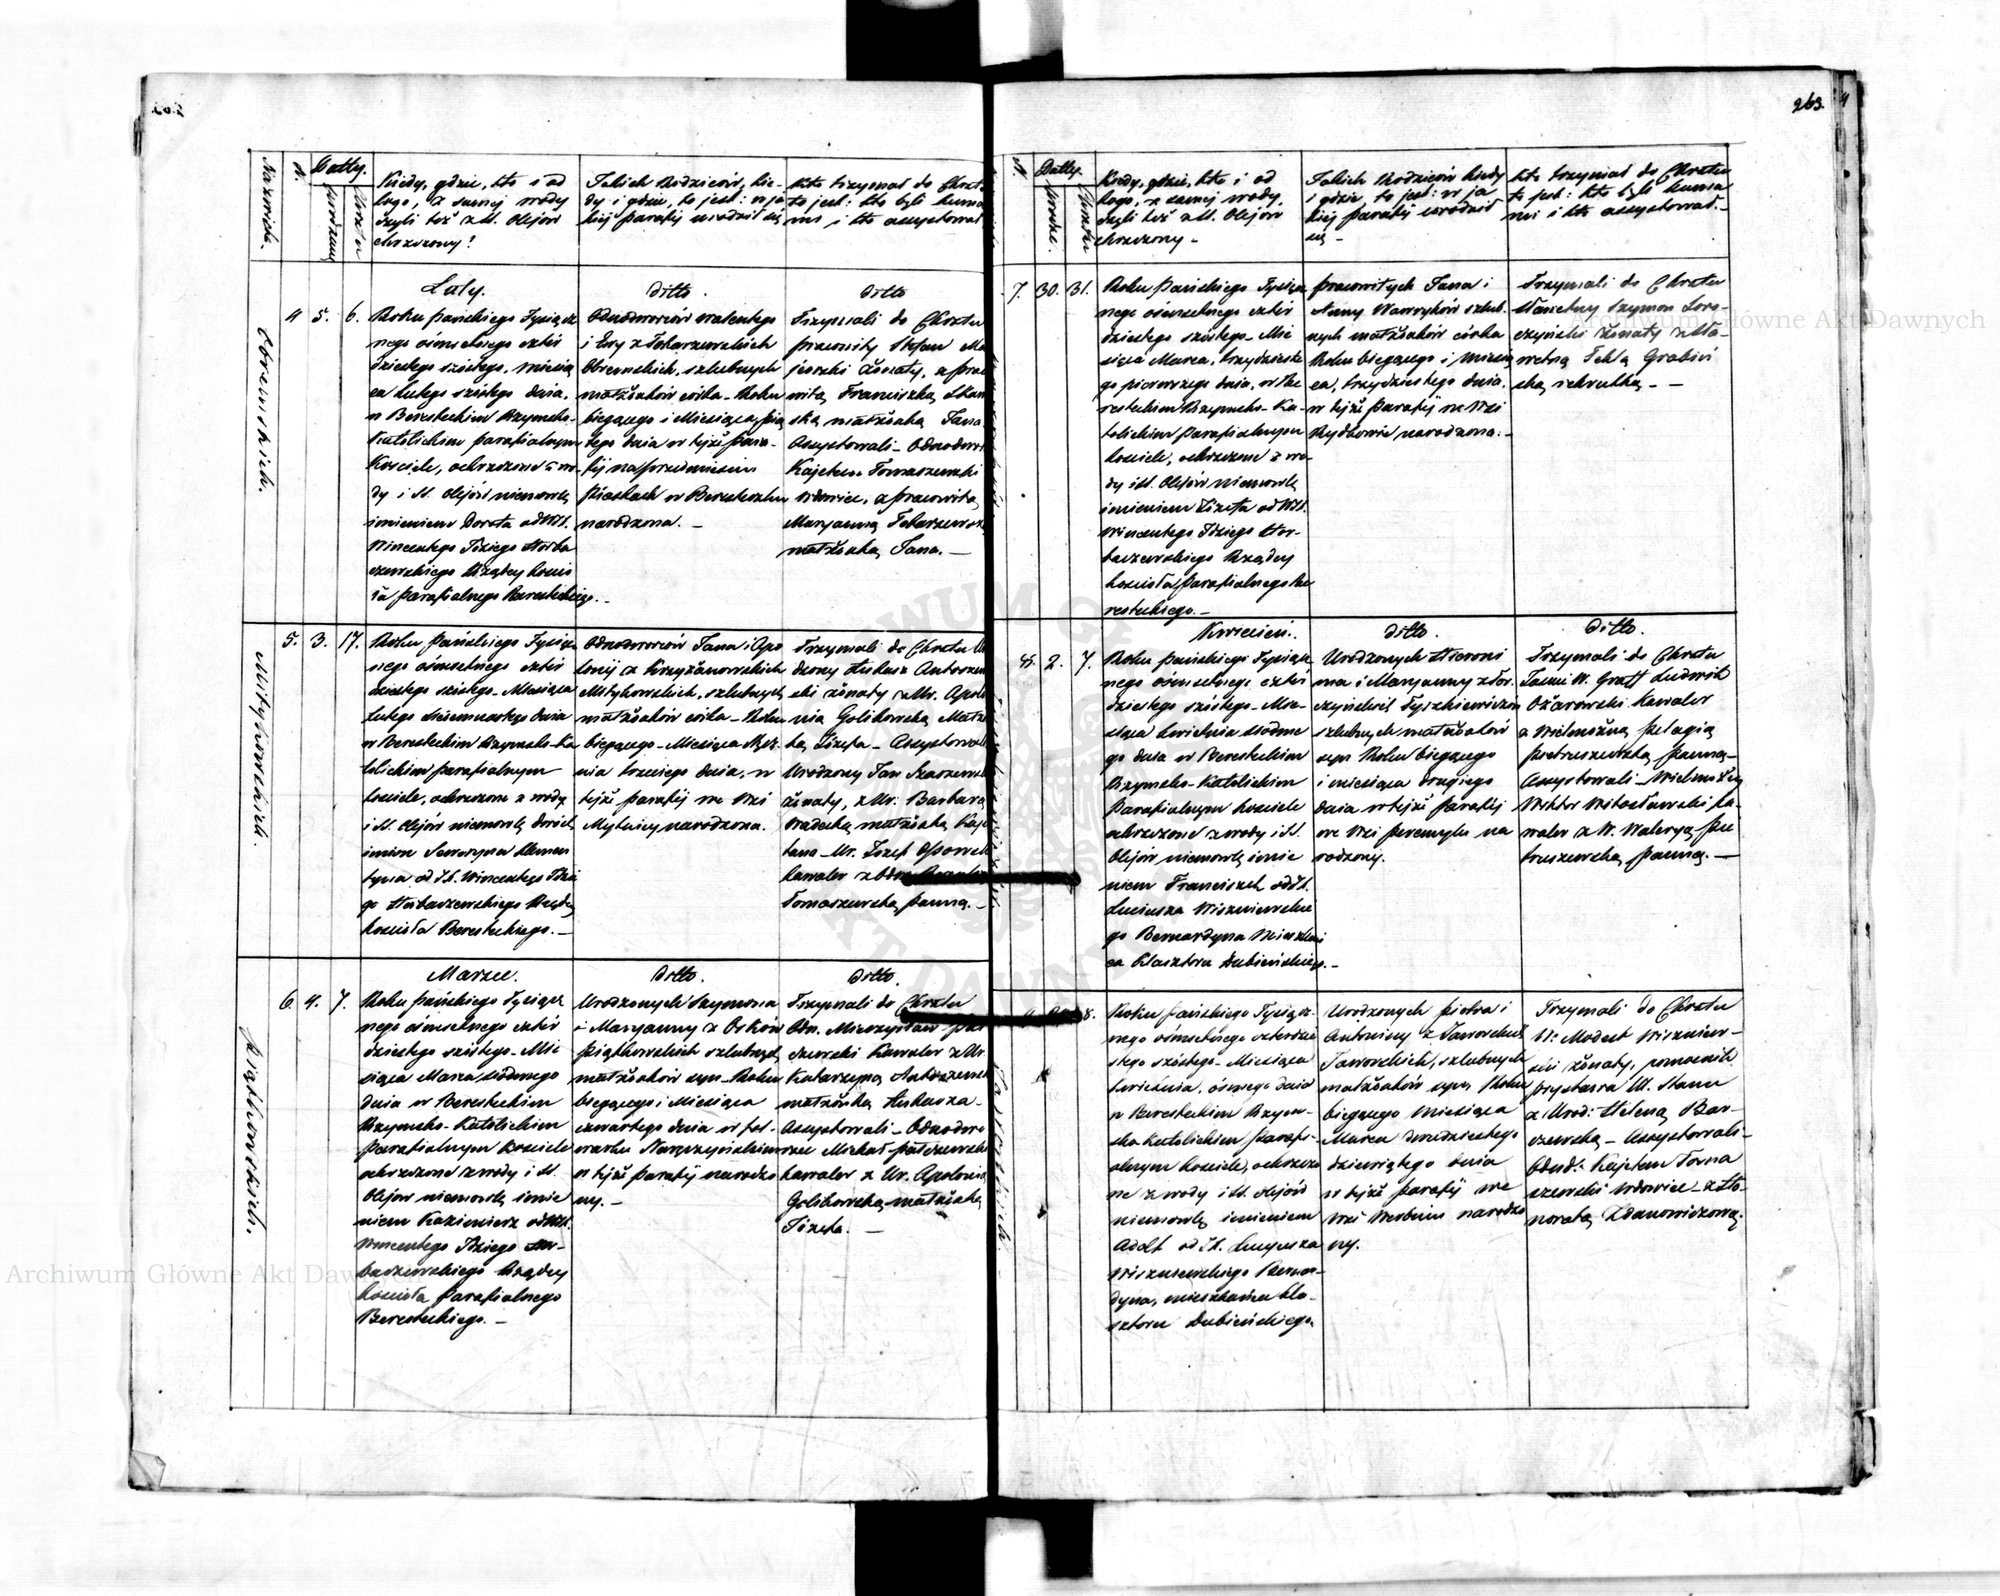 263.
Nazwiska.
N.
Datty.
Urodzenia
Chrztu
Kiedy, gdzie, kto i od
kogo, z samej wody
czyli też z SS. Olejów
chrzczony?
Jakich Rodziców, kie-
dy i gdzie, to jest: w ja
kiej parafij urodził się
Kto trzymał do Chrztu
to jest: kto byli kuma
mi i kto assystował
4
5.
6.
Luty.
Roku Pańskiego Tysiącz
nego ośmsetnego czter
dziestego szóstego, miesią
ca Lutego szóstego dnia,
w Beresteckim Rzymsko-
Katolickim parafialnym
Kościele, ochrzczone z wo-
dy i SS. Olejów niemowlę
imieniem Dorota od WX.
Wincentego Idziego Horba
czewskiego Rządcy Kości
oła Parafialnego Beresteckiego.
ditto.
Odnodworców Walentego
i Ewy z Tokarzewskich
szlubnych
małżonków córka - Roku
biegącego i Miesiąca pią
tego dnia w tejże para-
fij na przedmieściu
Piaskach w Beresteczku
narodzona. -
ditto
Trzymali do Chrztu
pracowity Stefan
żonaty, z praco
witą Franciszką
małżonką Jana.
Assystowali - Odnodwor
Kajetan Tomaszewski
wdowiec, z pracowitą
Maryanną
małżonką Jana. -
5.
3.
17.
Roku Pańskiego Tysiącz
nego ośmsetnego czter
dziestego szóstego - Miesiąca
Lutego siedmnastego dnia
w Beresteckim Rzymsko-Ka
tolickim parafialnym
kościele, ochrzczone z wody
i SS. Olejów niemowlę dwóch
imion Seweryna Klemen
tyna od JX. Wincentego Idzi
go Horbaczewskiego Rządcy
kościoła Beresteckiego. -
Odnodworców Jana i Apo
lonij z Krzyżanowskich
szlubnych
małżonków córka - Roku
biegącego - Miesiąca
trzeciego dnia, w
tejże parafij we Wsi
Mytnicy narodzona.
Trzymali do Chrztu U
dzony Łukasz Antoszew
ski żonaty z Ur. Apolo
nią Golikowską Małżo
ką Józefa - Assystowali
Urodzony Jan
żonaty, z Ur: Barbarą
małżonką Kaje
tana - Ur. Józef
kawaler z Odn.
Tomaszewską panną. -
Piątkowskich.
6
4.
7.
Marzec.
Roku Pańskiego Tysiącz
nego ośmsetnego czter
dziestego szóstego - Mie
siąca Marca siódmego
dnia w Beresteckim
Rzymsko-Katolickim
Parafialnym kościele
ochrzczone z wody i SS.
Olejów niemowlę imie
niem Kazimierz od WX.
Wincentego Idziego Hor-
baczewskiego Rządcy
kościoła Parafialnego
Beresteckiego. -
ditto.
Urodzonych Szymona
i Maryanny z
Piątkowskich szlubnych
małżonków syn - Roku
biegącego i Miesiąca
czwartego dnia w fol-
warku
w tejże parafij narodzo
ny. -
ditto.
Trzymali do Chrztu
Odn. Mieczysław
Kawaler z Ur.
Katarzyną Antoszewsk
małżonką Łukasza -
Assystowali - Odnodwo
rzec Michał
kawaler z Ur. Apolonią
Golikowską małżonką
Józefa. -
N.
Datty.
Urodze.
Chrztu
Kiedy, gdzie, kto i od
kogo, z samej wody,
czyli też z SS. Olejów
chrzczony -
Jakich Rodziców kiedy
i gdzie, to jest: w ja
kiej parafij urodził
się -
Kto trzymał do Chrztu
to jest: kto byli kuma
mi i kto assystował. -
7.
30.
31.
Roku Pańskiego Tysiącz
nego ośmsetnego czter
dziestego szóstego - Mie
siąca Marca, trzydzieste
go pierwszego dnia, w Be
resteckim Rzymsko-Ka-
tolickim Parafialnym
kościele, ochrzczone z wo
dy i SS. Olejów niemowlę
imieniem Józefa od WX.
Wincentego Idziego Hor-
baczewskiego Rządcy
kościoła Parafialnego Be
resteckiego. -
Pracowitych Jana i
Anny Wawryków szlub-
nych małżonków córka
Roku biegącego i miesią
ca, trzydziestego dnia,
w tejże parafij we Wsi
narodzona. -
Trzymali do Chrztu
Szlachetny Szymon
żonaty z Szla-
chetną Teklą
2.
7.
Kwiecień.
Roku Pańskiego Tysiącz
nego ośmsetnego czter
dziestego szóstego - Mie-
siąca kwietnia siódme
go dnia w Beresteckim
Rzymsko-Katolickim
Parafialnym kościele
ochrzczone z wody i SS.
Olejów niemowlę imie
niem Franciszek od JX.
Lucyusza Wiszniewskie
go Bernardyna Mieszkań
ca Klasztoru Dubieńskiego. -
ditto.
Urodzonych Hieroni
ma i Maryanny z
Tyszkiewiczów
szlubnych małżonków
syn Roku biegącego
i miesiąca drugiego
dnia w tejże parafij
we Wsi Peremylu na
rodzony.
ditto.
Trzymali do Chrztu
Jaśnie W. Graff Ludwik
Ożarowski kawaler
z Wielmożną Pelagią
Pietruszewską panną -
Assystowali - Wielmożny
Wiktor Witosławski ka-
waler z W. Waleryą Pie
truszewską panną. -
8.
Roku Pańskiego Tysiącz-
nego ośmsetnego czterdzie
stego szóstego - Miesiąca
kwietnia, ósmego dnia
w Beresteckim Rzym-
sko Katolickim parafi-
alnym kościele, ochrzczo
ne z wody i SS. olejów
niemowlę imieniem
Adolf od JX. Lucyusza
Wiszniewskiego Bernar-
dyna, mieszkańca kla-
sztoru Dubieńskiego,
Urodzonych Piotra i
Antoniny z Jaworskich
Jaworskich, szlubnych
małżonków syn, Roku
biegącego Miesiąca
Marca dwudziestego
dziewiątego dnia
w tejże parafij we
Wsi Werbniu narodzo
ny.
Trzymali do Chrztu
Ur. Modest Wiszniew-
ski żonaty, pomocnik
z Urod: Heleną Bar-
czewską - Assystowali -
Odnd: Kajetan Toma
szewski wdowiec - z Ho-
noratą Zdanowiczową.
Archiwum Główne Akt Dawnych
Archiwum Główne Akt Dawnych